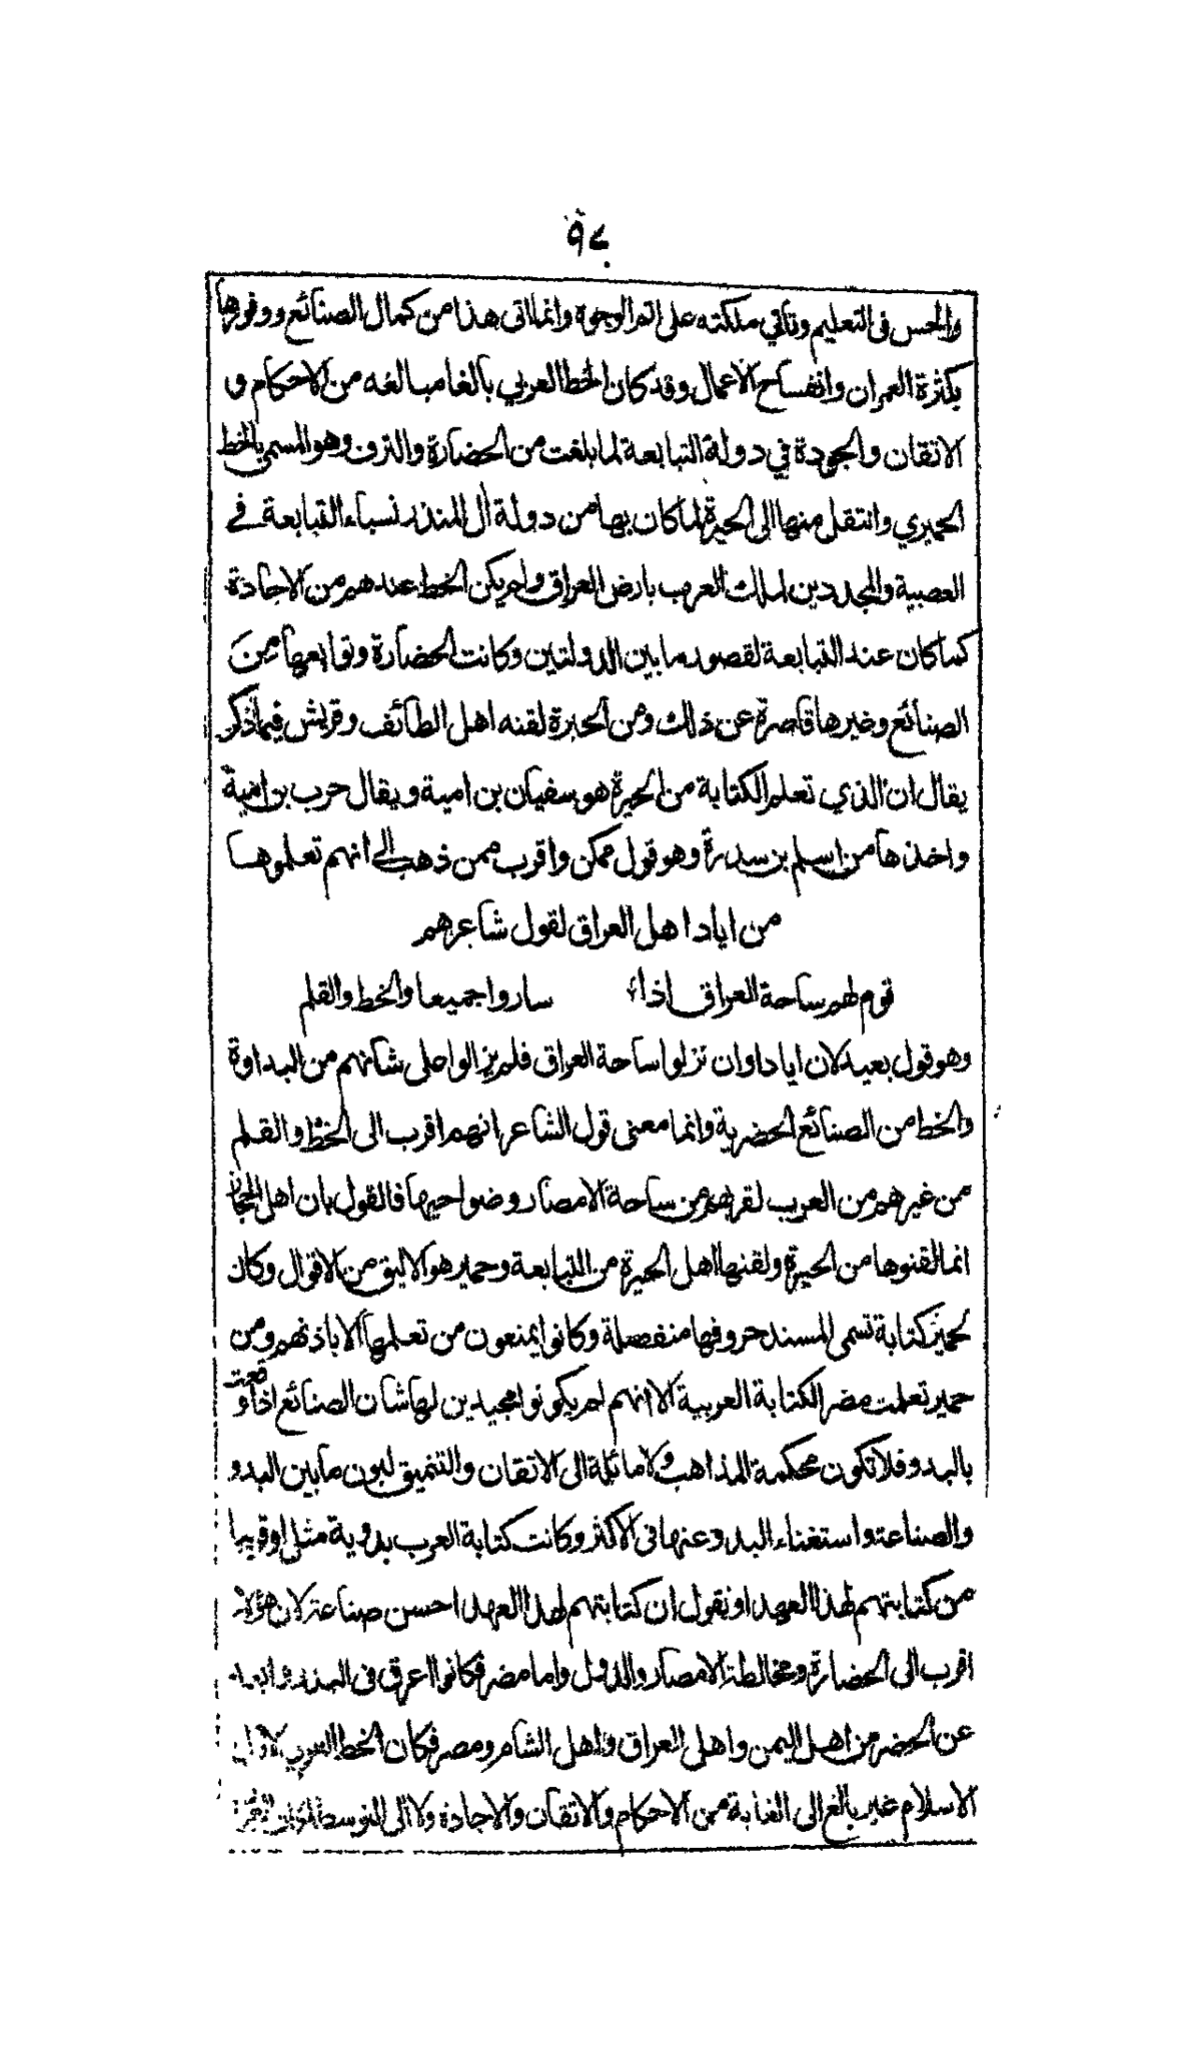 ٩٨
والحس في التعليم وتأتي ملكته على اتم الوجوه وانما اتى هذا من كمال الصنائع ووفورها
بكثرة العمران وانفساح الاعمال وقد كان الخط العربي بالغا مبالغه من الاحكام و
الاتقان والجودة في دولة التبابعة لما بلغت من الحضارة والترف وهو المسمى بالخط
الحميري وانتقل منها الى الحيرة لما كان بها من دولة أل المنذر نسباء التبابعة في
العصبية والمجددين لملك العرب بارض العراق ولم يكن الخط عندهم من الاجادة
كما كان عند التبابعة لقصور ما بين الدولتين وكانت الحضارة وتوابعها من
الصنائع وغيرها قاصرة عن ذلك ومن الحيرة لقنه اهل الطائف وقريش فيما ذكر
يقال ان الذي تعلم الكتابة من الحيرة هو سفيان بن امية ويقال حرب بن امية
واخذها من اسلم بن سدرة وهو قول ممكن واقرب ممن ذهب الى انهم تعلموها
من اياد اهل العراق لقول شاعرهم
قوم لهم ساحة العراق اذا ساروا جميعا والخط والقلم
وهو قول بعيد لان اياداوان نزلوا ساحة العراق فلم يزالوا على شانهم من البداوة
والخط من الصنائع الحضرية وانما معنى قول الشاعر انهم اقرب الى الخط والقلم
من غيرهم من العرب لقربهم من ساحة الامصار وضواحيها فالقول بان اهل الحجاز
انما لقنوها من الحيرة ولقنها اهل الحيرة من التبابعة وحمير هو الاليق من الاقوال وكان
لحمير كتابة تسمى المسند حروفها منفصلة وكانوا يمنعون من تعلمها الا باذنهم ومن
حمير تعلمت مضر الكتابة العربية الا انهم لم يكونوا مجيدين لها شان الصنائع اذا وقعت
بالبدو فلا تكون محكمة المذاهب ولا مائلة الى الاتقان والتنميق لبون ما بين البدو
والصناعة واستغناء البدو عنها في الاكثر وكانت كتابة العرب بدوية مثل او قريبا
من كتابتهم لهذا العهد او نقول ان كتابتهم لهذا العهد احسن صناعة لان هؤلاء
اقرب الى الحضارة ومخالطة الامصار والدول واما مضر فكانوا اعرق في البدو وابعد
عن الحضر من اهل اليمن واهل العراق واهل الشام ومصر فكان الخط العربي لاول
الاسلام غير بالغ الى الغاية من الاحكام والاتقان والاجادة ولا الى التوسط